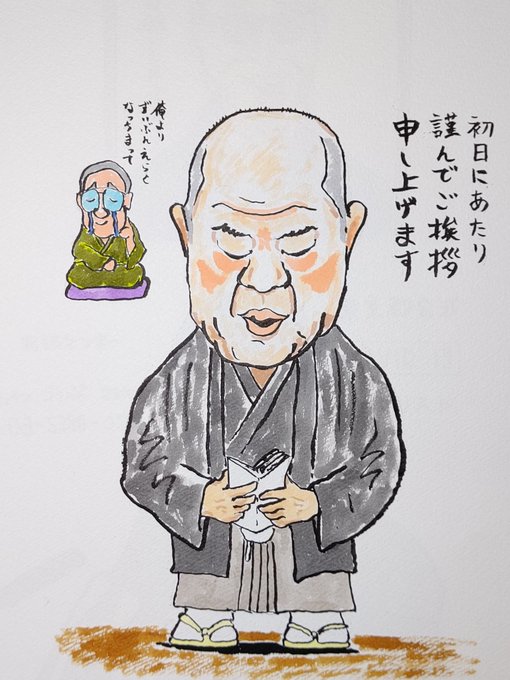 初日にあたり
謹んでご挨拶
申し上げます
俺より
ずいぶんえらく
なっちまって